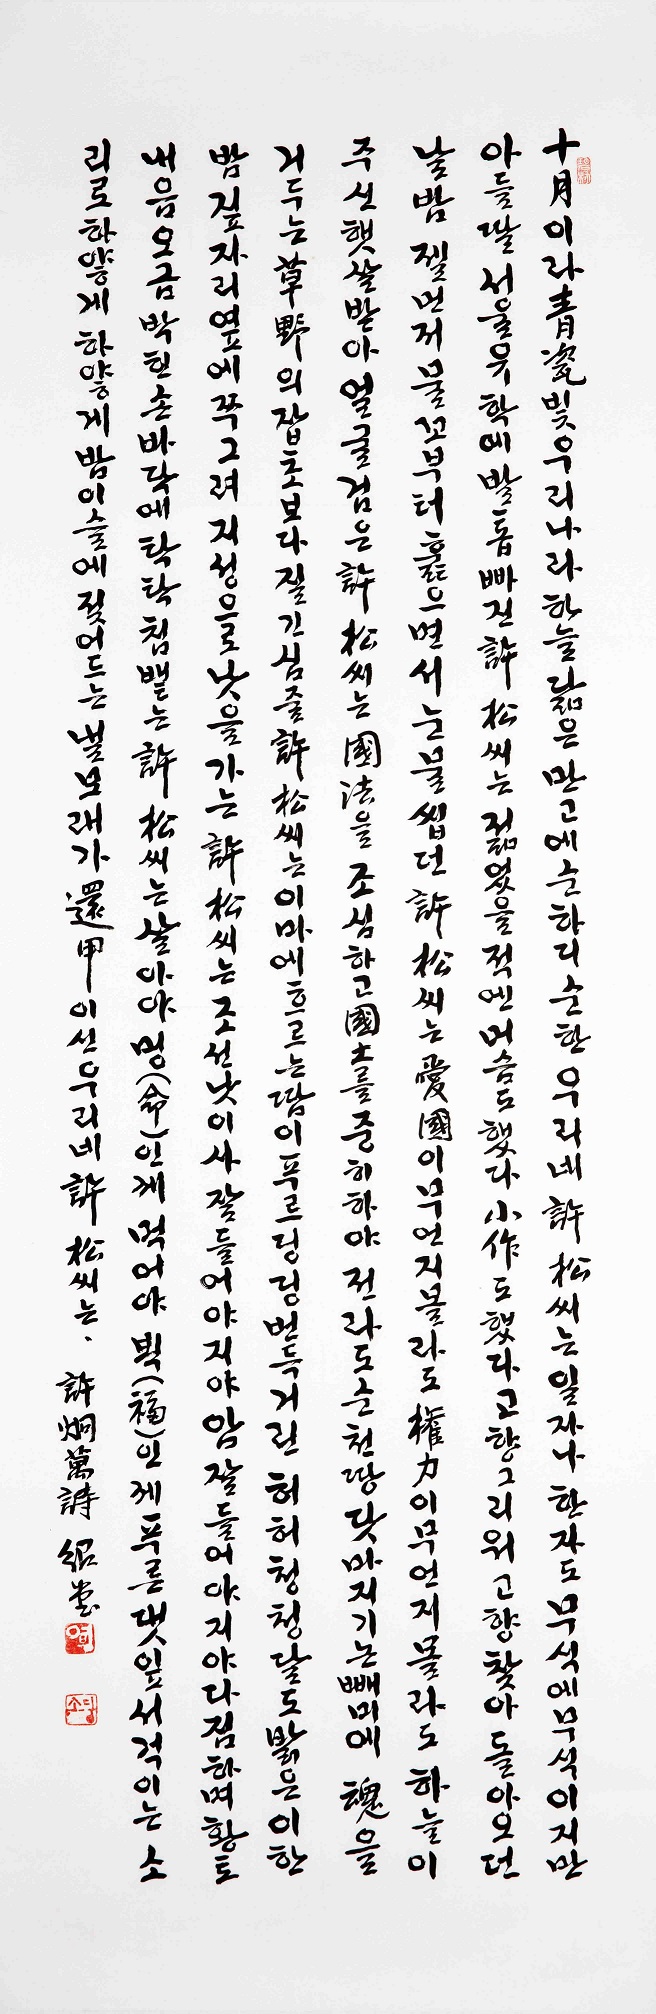 十月이라 青瓷빛 우리나라 하늘 닮은 만고에 순하디 순한 우리네 許松씨는 일자나 한자도 무식에 무식이지만
아들딸 서울유학에 발톱 빠진 許松씨는 젊었을 적엔 머슴도 했다 小作도 했다 고향 그리워 고향 찾아 돌아오던
날밤 젤 먼저 물꼬부터 훑으면서 눈물 씹던 許松씨는 愛國이 무언지 몰라도 權力이 무언지 몰라도 하늘이
주신 햇살 받아 얼굴 검은 許松씨는 國法을 조심하고 國土를 중히하야 전라도 순천땅 닷마지기 논빼미에 魂을
거두는 草野의 잡초보다 질긴 심줄 許松씨는 이마에 흐르는 땀이 푸르딩딩 번득거린 허허청청 달도 밝은 이 한
밤 짚자리 옆에 쭈그려 지성으로 낫을 가는 許松씨는 조선낫이사 잘 들어야지야 암 잘 들어야지야 다짐하며 황토
내음 오금 박힌 손바닥에 탁탁 침 뱉는 許松씨는 살아야 명(命)인게 먹어야 복(福)인게 푸른 댓잎 서걱이는 소
리로 하얗게 하얗게 밤이슬에 젖어드는 낼모래가 還甲이신 우리네 許松씨는、 許炯萬詩 紹堂